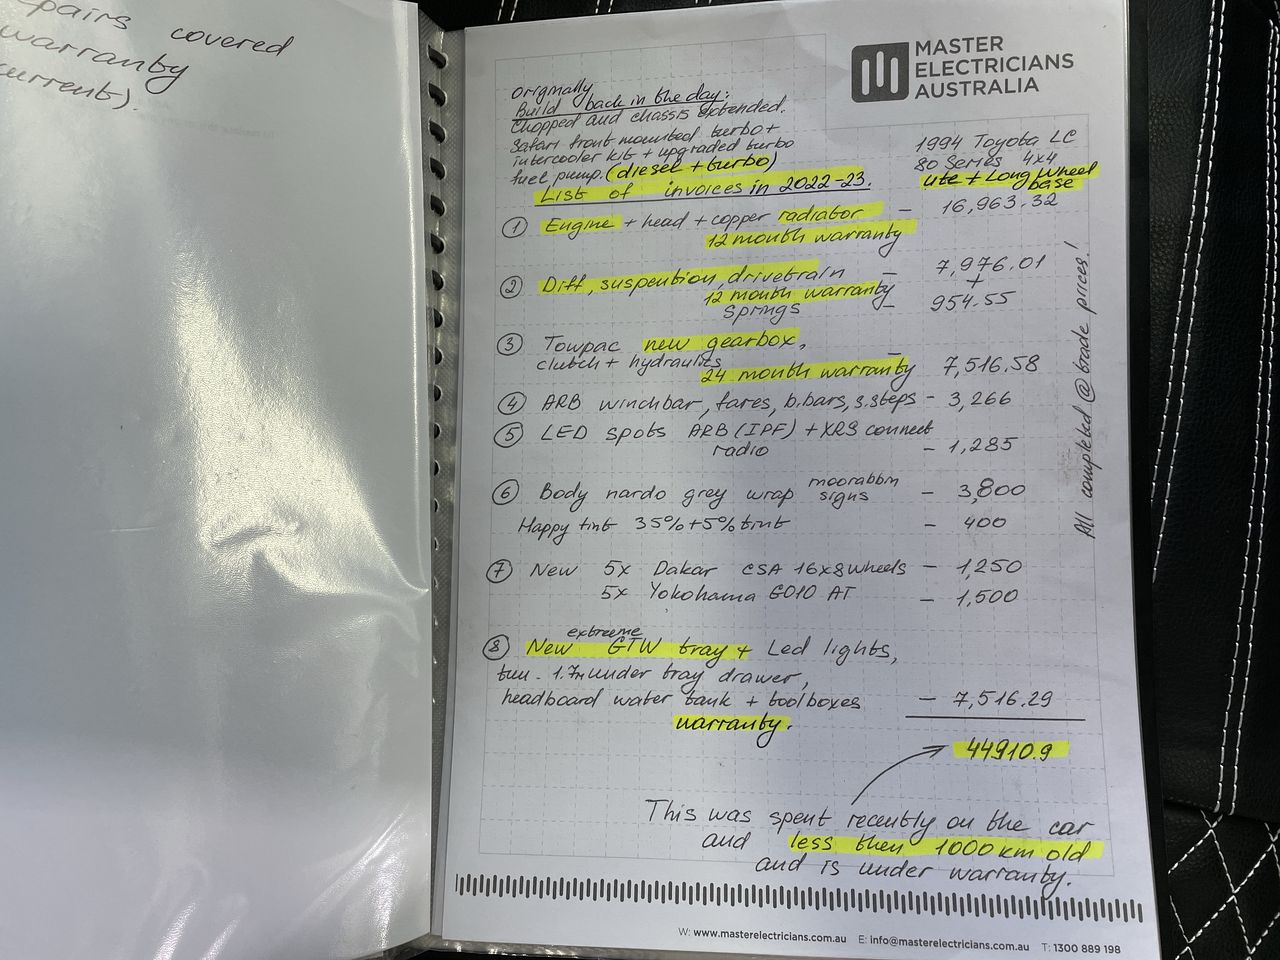 pairs covered
warranty
current).
MASTER
ELECTRICIANS
AUSTRALIA
originally
Build back in the day:
Chopped and chassis extended.
Safari front mounted turbo +
intercooler kit + upgraded turbo
fuel pump. (diesel + turbo)
1994 Toyota LC
80 Series 4x4
ute + Long Wheel
base
List of invoices in 2022-23.
① Engine + head + copper radiator – 16,963.32
12 month warranty
② Diff, suspention, drivetrain – 7,976.01
12 month warranty +
springs – 954.55
③ Towpac new gearbox,
clutch + hydraulics –
24 month warranty 7,516.58
④ ARB winchbar, fares, b.bars, s.steps - 3,266
⑤ LED spots ARB (IPF) + XRS connect
radio – 1,285
⑥ Body nardo grey wrap moorabbin signs – 3,800
Happy tint 35% + 5% tint – 400
⑦ New 5x Dakar CSA 16x8 wheels – 1,250
5x Yokohama G010 AT – 1,500
extreeme
⑧ New GTW tray + Led lights,
1.7m under tray drawer,
headboard water tank + toolboxes – 7,516.29
warranty.
44910.9
All completed @ trade prices!
This was spent recently on the car
and less then 1000 km old
and is under warranty.
W: www.masterelectricians.com.au E: info@masterelectricians.com.au T: 1300 889 198